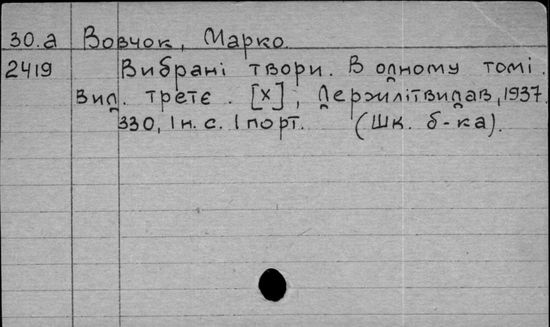 30.а Вовчок, Марко.
2419 Вибрані твори. В одному томі.
Вид. третє. [х], Держлітвидав, 1937.
330, 1 н. с. 1 порт. (Шк. б-ка).